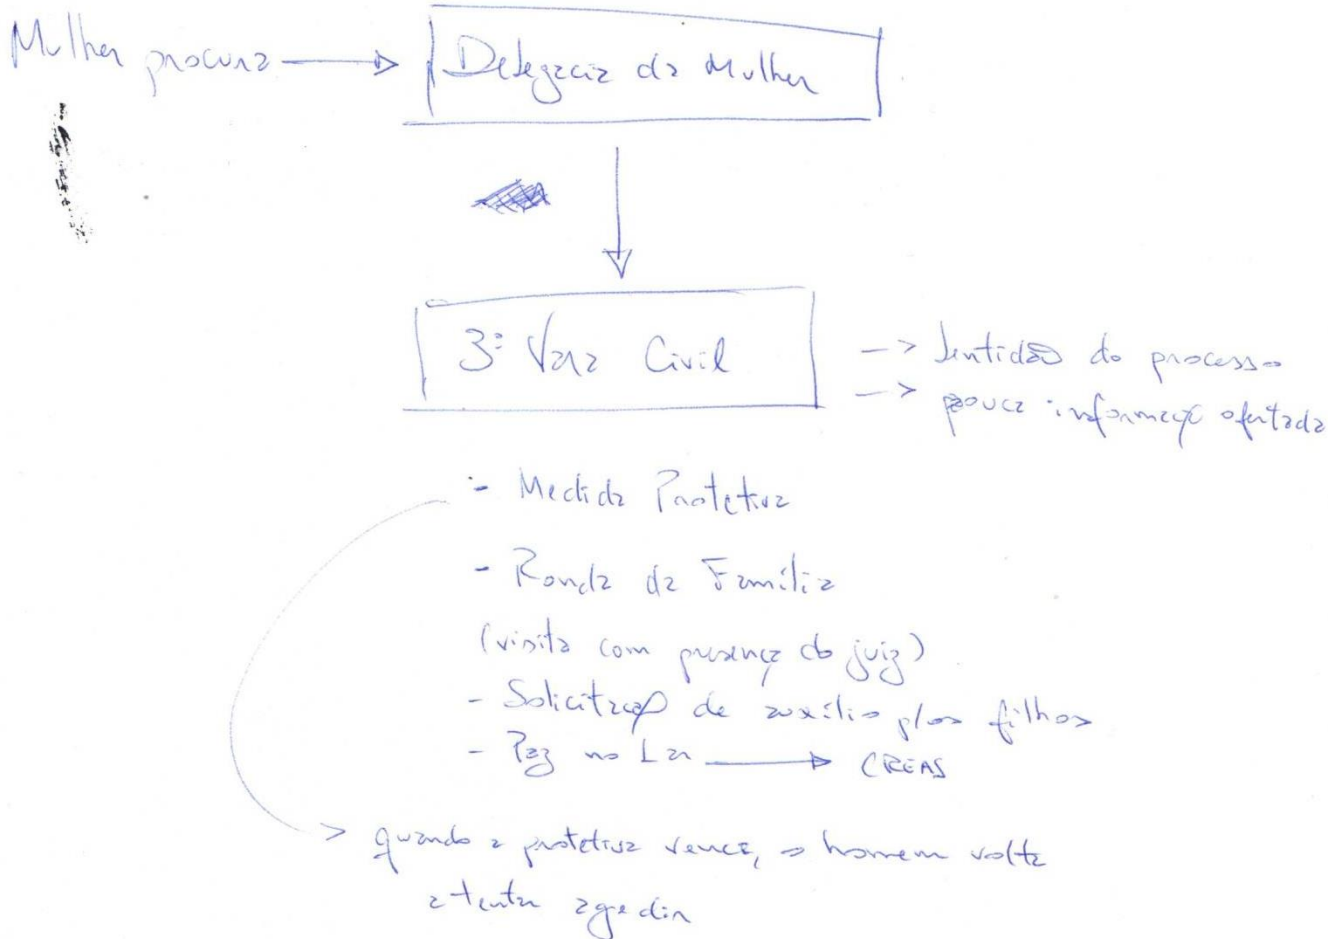 Mulher procura
Delegacia da Mulher
3ª Vara Civil
-> lentidão do processo
-> pouca informaçã ofertada
- Medida Protetiva
- Ronda da Família
(visita com presença do juiz)
- Solicitação de auxílio p/os filhos
- Paz no Lar
CREAS
> quando a protetiva vence, o homem volta
a tentar agedir